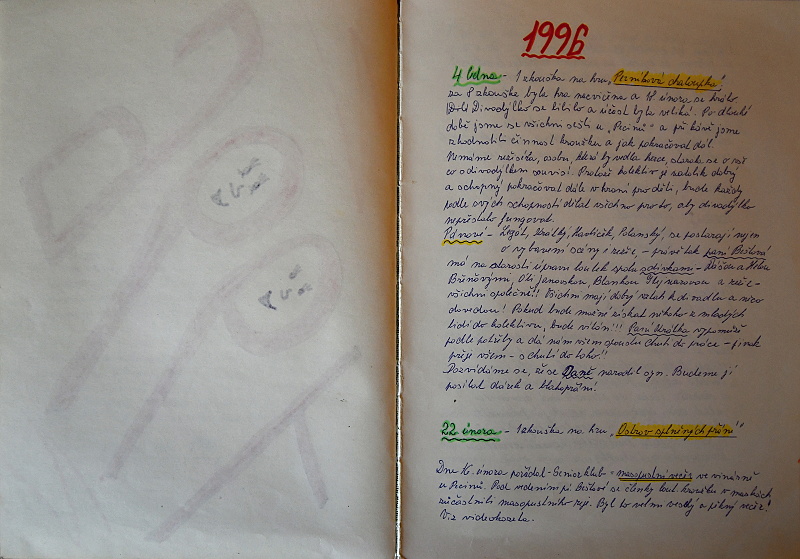 1996
4 ledna - 1 zkouška na hru „Perníková chaloupka".
za 8 zkoušek byla hra nacvičena a 18. února se hrálo.
Divadýlko se líbilo a účast byla veliká. Po dlouhé
době jsme se všichni sešli u „Picinů" a při kávě jsme
zhodnotili činnost kroužku a jak pokračovat dál.
Nemáme režiséra, osobu, která by vedla herce, starala se o vše
co s divadýlkem souvisí. Protože kolektiv je natolik dobrý
a schopný pokračovat dále v hraní pro děti, bude každý
podle svých schopností dělat všechno pro to, aby divadýlko
nepřestalo fungovat.
Pánové - Krátký, Havlíček, Polanský, se postarají nejen
o vybavení scény i režie, - právě tak paní Bešťová
má na starosti úpravu loutek spolu s dívkami - a
Oli Janovskou, Blankou a režie -
všichni společně!! Všichni mají dobrý vztah k divadlu a něco
dovedou! Pokud bude možné získat někoho z mladých
lidí do kolektivu, bude vítán!! Paní Krátká vypomůže
podle potřeby a dá nám všem spoustu chuti do práce - jinak
přeje všem - s chutí do toho!!
Dozvídáme se, že se Daně narodil syn. Budeme jí
posílat dárek a blahopřání!
22 února - 1 zkouška na hru „Ostrov splněných přání"
Dne 16. února pořádal - Seniorklub - masopustní večer ve vinárně
u Picinů. Pod vedením pí Bešťové se členky lout. kroužku v maskách
zúčastnili masopustního reje. Byl to velmi veselý a pěkný večer!
Viz videokazeta.